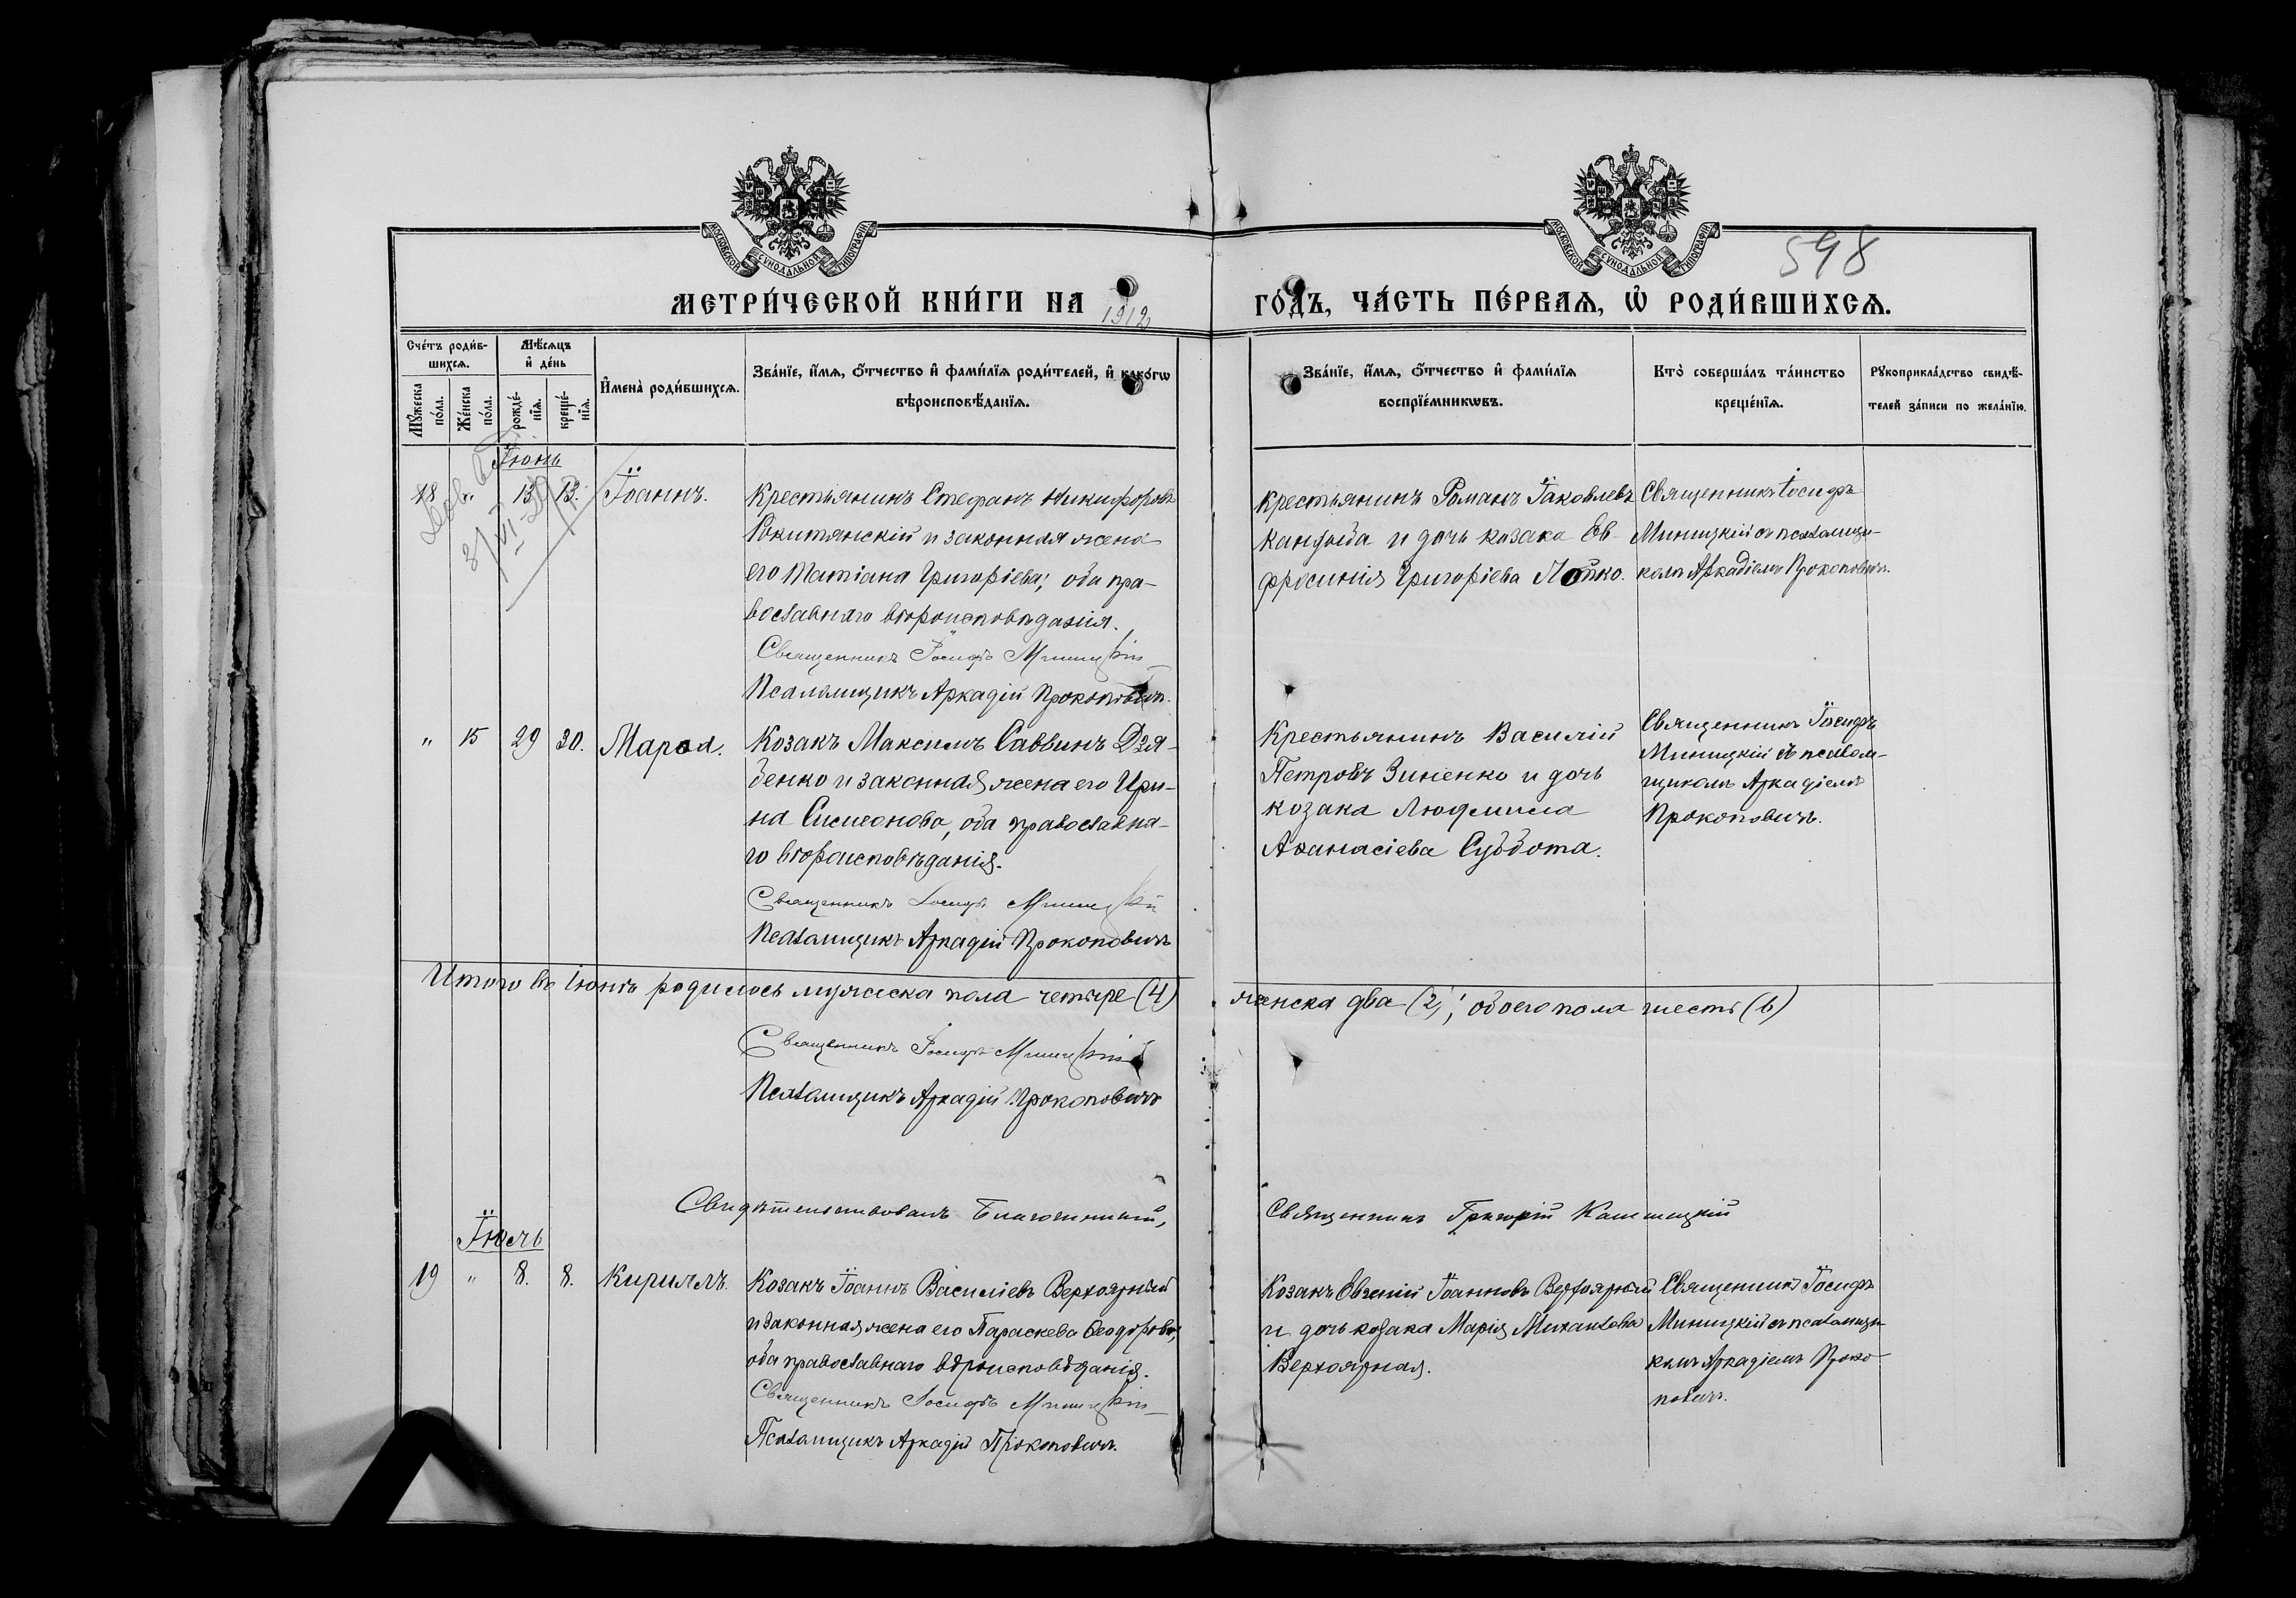 МОСКОВСКОЙ СѴНОДАЛЬНОЙ ТИПОГРАФІИ
МОСКОВСКОЙ СѴНОДАЛЬНОЙ ТИПОГРАФІИ
598
МЕТРИ́ЧЕСКОЙ КНИ́ГИ НА 1912 ГО́ДЪ, ЧА́СТЬ ПЕ́РВАЯ, Ѡ҆ РОДИ́ВШИХСѦ.
Сче́тъ роди́в-
шихсѧ.
Мꙋ́жеска по́ла.
Же́нска по́ла.
Мѣ́сѧцъ
и҆ де́нь
рожде́-нїѧ.
креще́-нїѧ.
И҆мена̀ роди́вшихсѧ.
Зва́нїе, и҆́мѧ, ѻ҆́тчество и҆ фами́лїѧ роди́телей, и҆ како́гѡ
вѣроисповѣ́данїѧ.
Зва́нїе, и҆́мѧ, ѻ҆́тчество и҆ фами́лїѧ
воспрїе́мникѡвъ.
Кто̀ соверша́лъ та́инство
креще́нїѧ.
Рꙋкоприкла́дство свидѣ́-
телей за́писи по жела́нїю.
Іюнь
18 " 13 13. Іоаннъ.
Крестьянинъ Стефанъ Никифоровъ
Рокитянскій и законная жена
его Татіана Григоріева; оба пра-
вославнаго вѣроисповѣданія.
Священникъ Іосифъ Миницкій
Псаломщикъ Аркадій Прокоповичъ.
Крестьянинъ Романъ Іаковлевъ
и дочь козака Ев-
фросинія Григоріева
Священникъ Іосифъ
Миницкій съ псаломщи-
комъ Аркадіемъ Прокоповичъ.
" 15 29 30. Марѳа.
Козакъ Максимъ Саввинъ Дзя-
бенко и законная жена его Ири-
на Симеонова, оба православна-
го вѣроисповѣданія.
Священникъ Іосифъ Миницкій
Псаломщикъ Аркадій Прокоповичъ
Крестьянинъ Василій
Петровъ Зиненко и дочь
козака Людмила
Аѳанасіева Суббота.
Священникъ Іосифъ
Миницкій съ псалом-
щикомъ Аркадіемъ
Прокоповичъ.
Итого въ Іюнѣ родилось мужеска пола четыре (4) женска два (2), обоего пола шесть (6)
Священникъ Іосифъ Миницкій
Псаломщикъ Аркадій Прокоповичъ
Свидѣтельствовалъ Благочинный, Священникъ Григорій
Іюль
19 " 8. 8. Кириллъ.
Козакъ Іоаннъ Василіевъ Верхоярный
и законная жена его Параскева Ѳеодорова,
оба православнаго вѣроисповѣданія.
Священникъ Іосифъ Миницкій
Псаломщикъ Аркадій Прокоповичъ.
Козакъ Евгеній Іоанновъ Верхоярный
и дочь козака Марія Михаилова
Верхоярная.
Священникъ Іосифъ
Миницкій съ псаломщи-
комъ Аркадіемъ Проко-
повичъ.